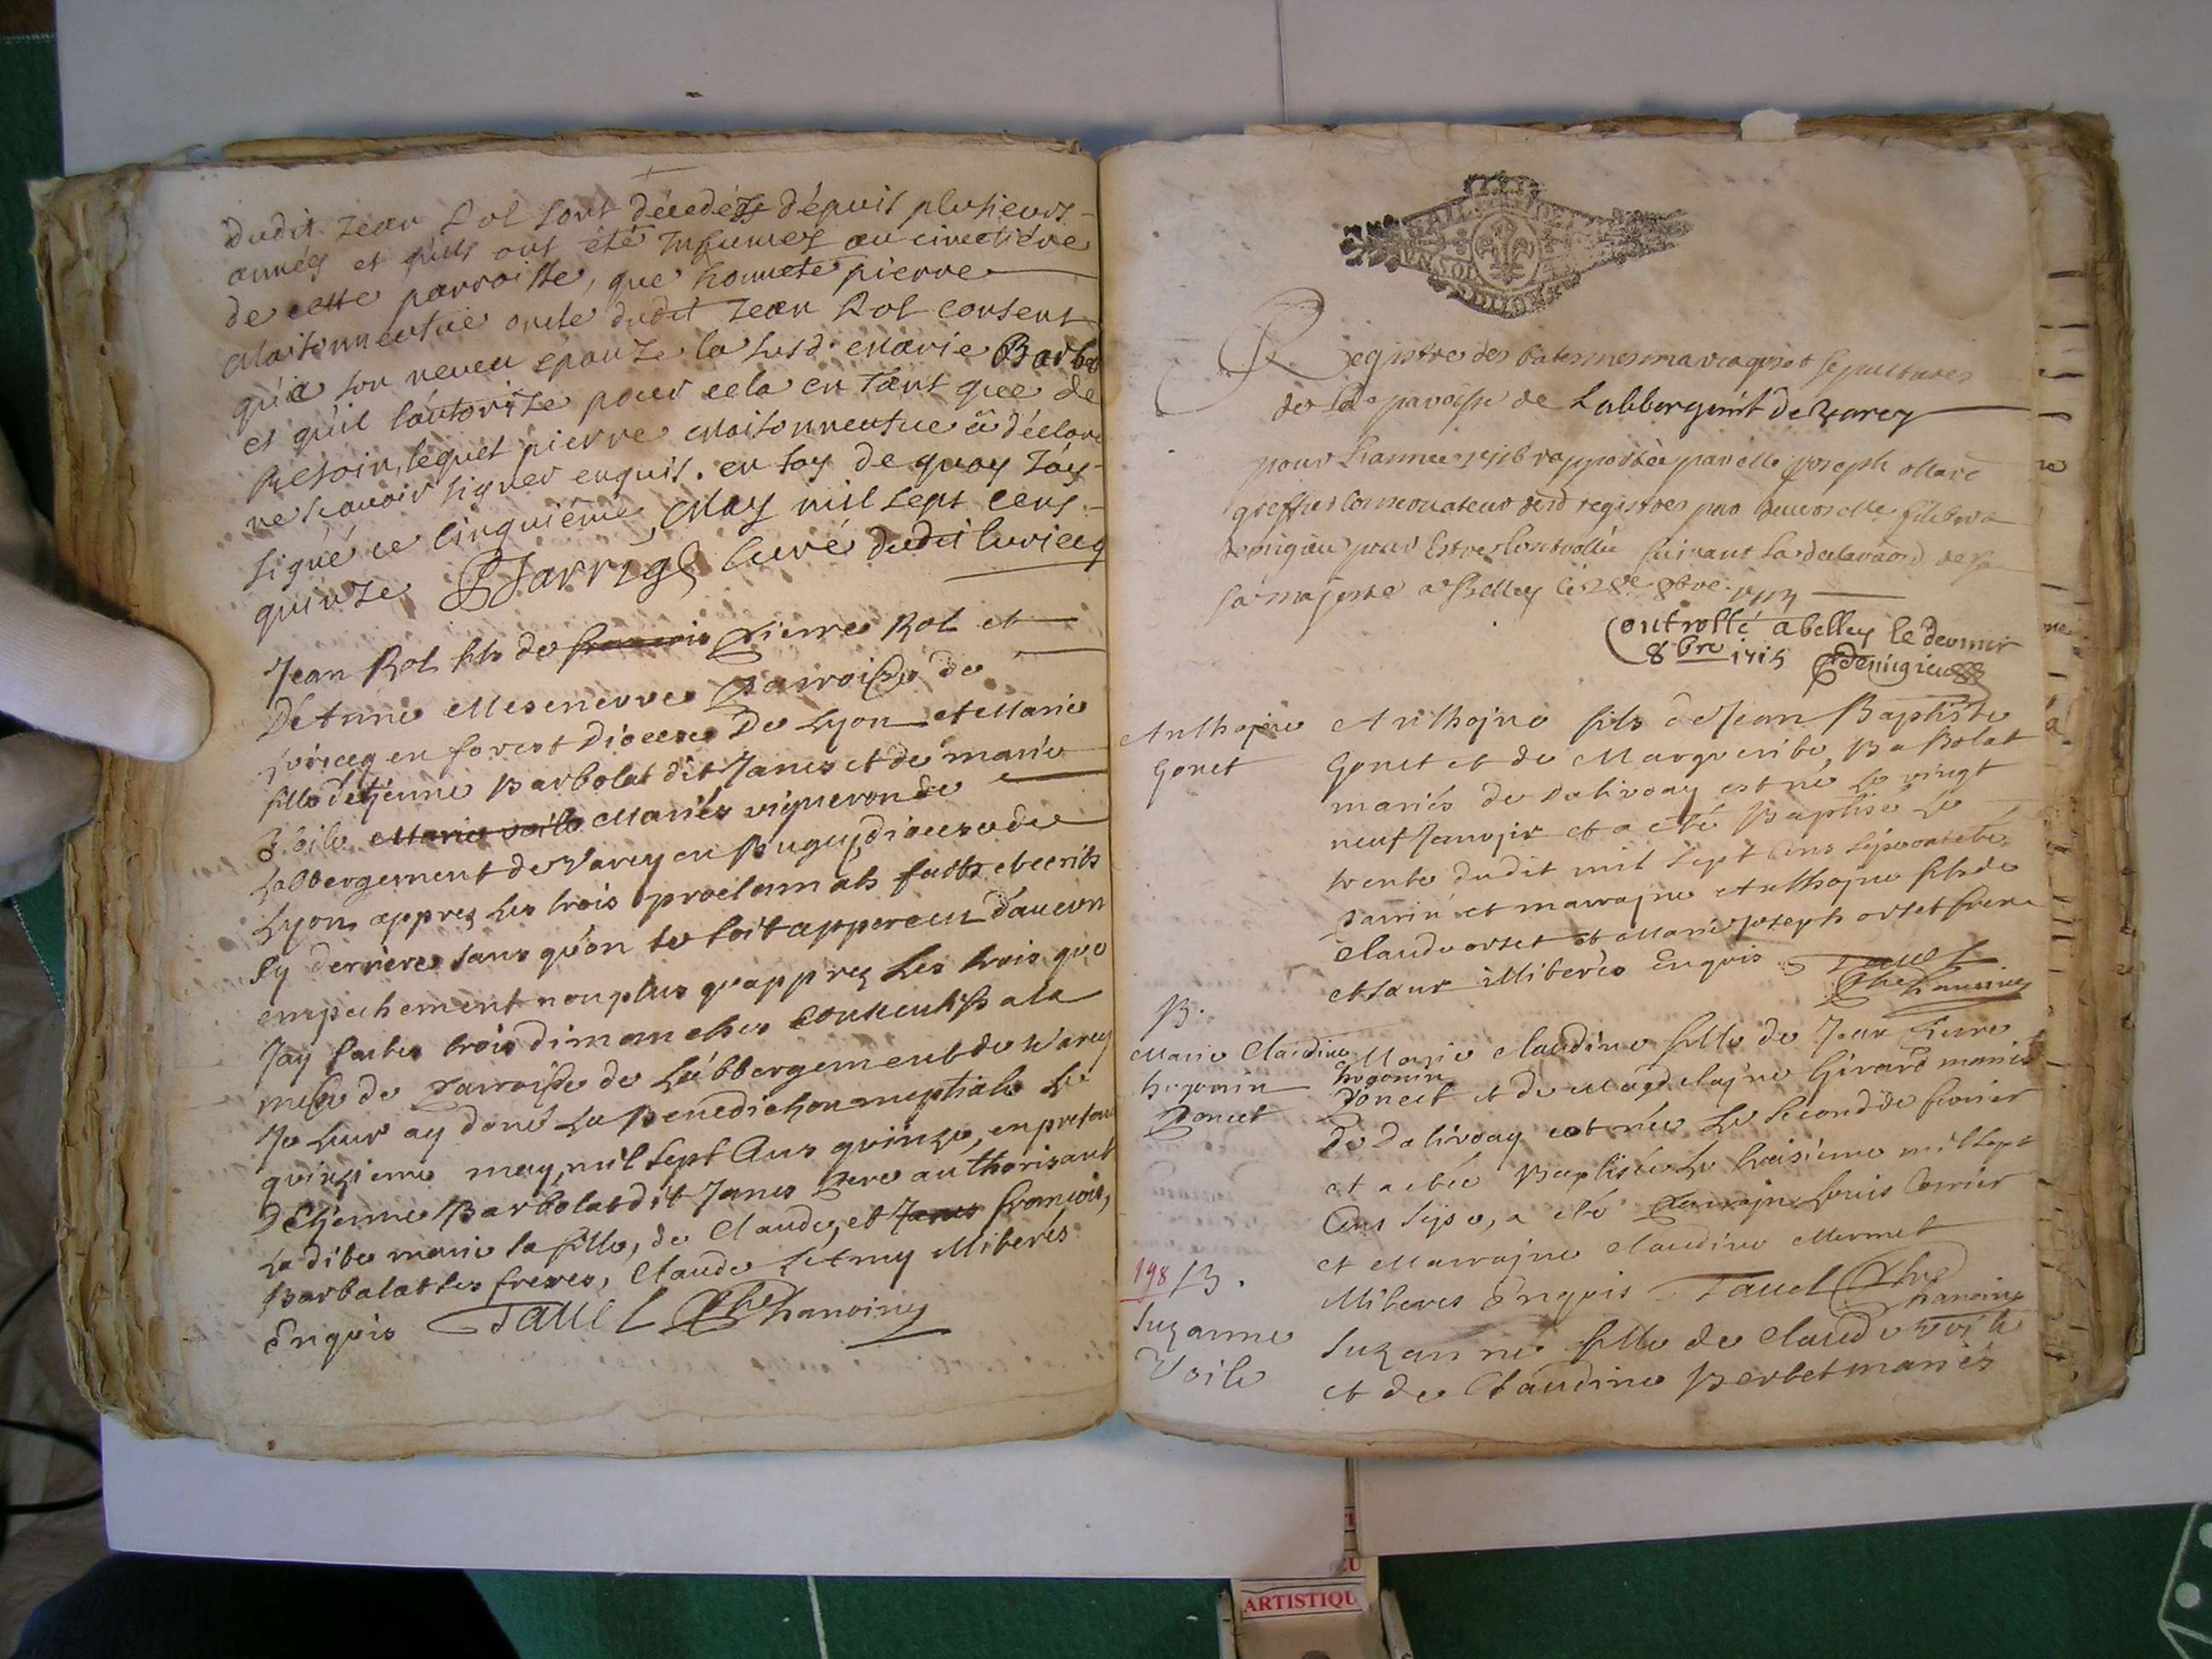 dudit Jean Rol sont décedés dépuit plusieurs
années et qu'ils ont été Inhumes au cimetiére
de cette parroisse, que honnete pierre
Maisonneufue oncle dudit Jean Rol consent
qu'a son neveu épouze la susd. Marie Barbo
et qu'il l'autorize pour cela en tant que de
besoin, lequel pierre Maisonneufue a déclaré
ne scavoir signer enquis. en foy de quoy J'ay
signé ce cinquiéme May mil sept cens
quinze Jarrige curé dudit luriecq
Jean Rol fils de francois pierre Rol et
De Anne Mesenerves parroisse de
luriecq en forest Diocese De Lyon et Marie
fille detienne Barbolat dit Janes et de marie
Voile Marie voile Mariés vigneron de
Labbergement de Varey en Bugey, diocese de
Lyon, appres les trois proclamats faits et ecrits
cy derriere sans qu'on se soit apperceu d'aucun
empechement non plus qu'appres les trois que
Jay faites trois dimanches consecutifs a la
messe de parroisse de Labbergement de Varey
Je leur ay doné La Benediction nuptiale le
quinzieme may, mil sept Cens quinze, en presence
D'Etienne Barbolat dit Janes pere authorisant
La dite marie sa fille, de Claude, et Janes francois,
Barbolat ses freres, Claude Illiteres
Enquis Tavel Pbre chanoine
Registre des batesmes mariages et sepultures
de la paroisse de Labbergemt de Varey
pour Lannee rapportée par Me Joseph Marc
greffier Conservateur desd registres par
demigieu pour Estre Controllée suivant La declaraon de sa
sa majesté a Belley le 28e 8bre
Controllé a belley le dernier
8bre 1715 Demigieu
Anthoine
Gonet
Anthoine fils de Jean Baptiste
Gonet et de Marguerite Babolat
mariés de Dalivoay est né le vingt
neuf Janvier et a été Baptisé Le
trente dudit mil sept Cens
parrin et marraine Anthoine fils de
Claude ortet et Marie Joseph ortet frere
et saur Illiterés Enquis Tavel
Pbre chanoine
B.
Marie Claudine
hugonin
Poncet
Marie Claudine fille de Jean pierre
hugonin
Poncet et de Magdelaine Girard mariés
de Dalivoay est née Le second de fevrier
et a été Baptisée Le troisieme mil sept
Cens a été parrain Louis
et Marraine Claudine Mermet
Illiteres Enquis Tavel Pbre
chanoine
198 B.
Suzanne
Voile
Suzanne fille de Claude Voile
et de Claudine Berbet mariés
ARTISTIQU